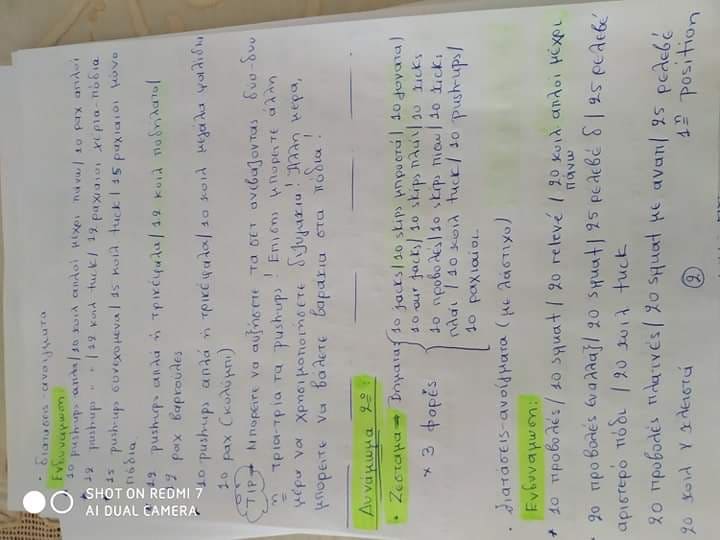 • Διατάσεις-ανοίγματα
Ενδυνάμωση:
* 10 pushups απλά/10 κοιλ απλοί μέχρι πάνω/ 10 ραχ απλοί
* 12 pushups " " /12 κοιλ tuck/ 12 ραχιαίοι χέρια-πόδια
15 pushups συνεχόμενα/ 15 κοιλ tuck/ 15 ραχιαίοι μόνο
πόδια
* 12 pushups απλά ή τρικέφαλα/ 12 κοιλ ποδήλατο/
9 ραχ βαρκούλες
* 10 pushups απλά ή τρικέφαλα/ 10 κοιλ μεγάλο ψαλίδι
10 ραχ (κολύμπι)
TIP → Μπορείτε να αυξήσετε τα σετ ανεβάζοντας δυο-δυο
ή τρία-τρία τα pushups! Επίσης μπορείτε άλλη
μέρα να χρησιμοποιήσετε! Άλλη μέρα,
μπορείτε να βάλετε βαράκια στα πόδια!
Δυνάμωμα 2ο:
• Ζέσταμα → Βήματα: 10 jacks/ 10 skips μπροστά/ 10 γόνατα/
10 air jacks/ 10 skips πλάι/ 10 kicks
× 3 φορές 10 προβολές/ 10 skips πίσω/ 10 kicks
πλάι / 10 κοιλ tuck/ 10 pushups/
10 ραχιαίοι
• Διατάσεις-ανοίγματα (με λάστιχο)
Ενδυνάμωση:
* 10 προβολές/ 10 squat/ 20 relevé / 20 κοιλ απλοί μέχρι
πάνω
* 20 προβολές εναλλάξ/ 20 squat/ 25 ρελεβέ δ/ 25 ρελεβέ
αριστερό πόδι / 20 κοιλ tuck
20 προβολές πλαϊνές/ 20 squat με αναπ/ 25 ρελεβέ
20 κοιλ V κλειστά 1η position
2